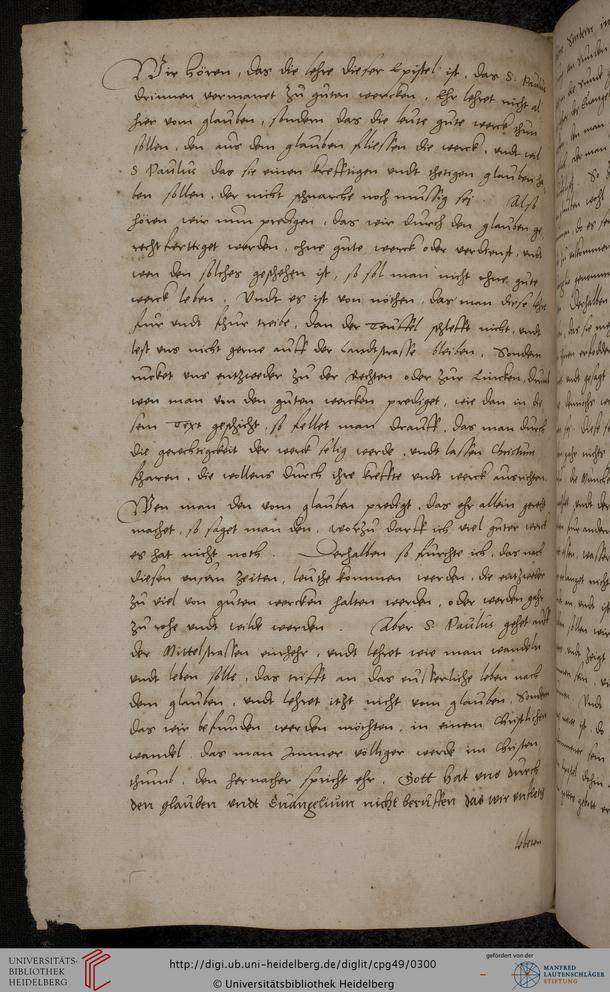 Wir hören, das die lehre dieser Epistel ist, das S. Paulus
drinnen vermanet zu guten wercken, Ehr lehret nicht al
hier vom glauben, sondern das die leute gute werck thun
sollen, den aus dem glauben fliessen die werck, undt wil
S Paulus das sie einen krefftigen undt thetigen glauben ha
ben sollen, der nicht schnarche noch mussig sei. Also
hören wir nun predigen, das wir durch den glauben ge
recht ferttiget werden, ohne gute werck oder verdienst, undt
wen den solches geschehen ist, so sol man nicht ohne gute
werck leben. Undt es ist von nöthen, das man diese lehre
fur undt fhur treibe, dan der Teuffel schlefft nicht, undt
lest uns nicht gerne auff der Landtstrasse bleiben, Sondern
rucket uns entzweder zu der Rechten oder zur Lincken,
wen man von den guten wercken prediget, wie dan in die
sem Text geschicht, so fellet man drauff, das man durch
die gerechtigckeit der werck selig werde, undt lassen Christum
fharen, die wollens durch ihre kreffte undt werck ausrichten
Wen man den vom glauben predigt, das ehr allein gerecht
machet, so saget man den, worzu darff ich viel guter werck
es hat nicht noth. Derhalben so fürchte ich, das nach
diesen unsern zeiten, leuthe kommen werden, die entzweder
zu viel von guten wercken halten werden, oder werden gahr
zu rohe undt wilde werden. Aber S Paulus gehet auff
der Mittelstrassen einhehr, undt lehret wie man wandeln
undt leben solle, das trifft an das eusserliche leben nach
dem glauben, undt lehret itzt nicht vom glauben, Sondern
das wir befunden werden möchten, in einem Christlichen
wandel das man Immer völliger werde im Christen
thumb, den hernacher spricht ehr, Gott hat uns durch
den glauben undt Euangelium nicht beruffen das wir unfletig
lebeten
UNIVERSITÄTS-
BIBLIOTHEK
HEIDELBERG
http://digi.ub.uni-heidelberg.de/diglit/cpg49/0300
© Universitätsbibliothek Heidelberg
gefördert von der
MANFRED
LAUTENSCHLÄGER
STIFTUNG